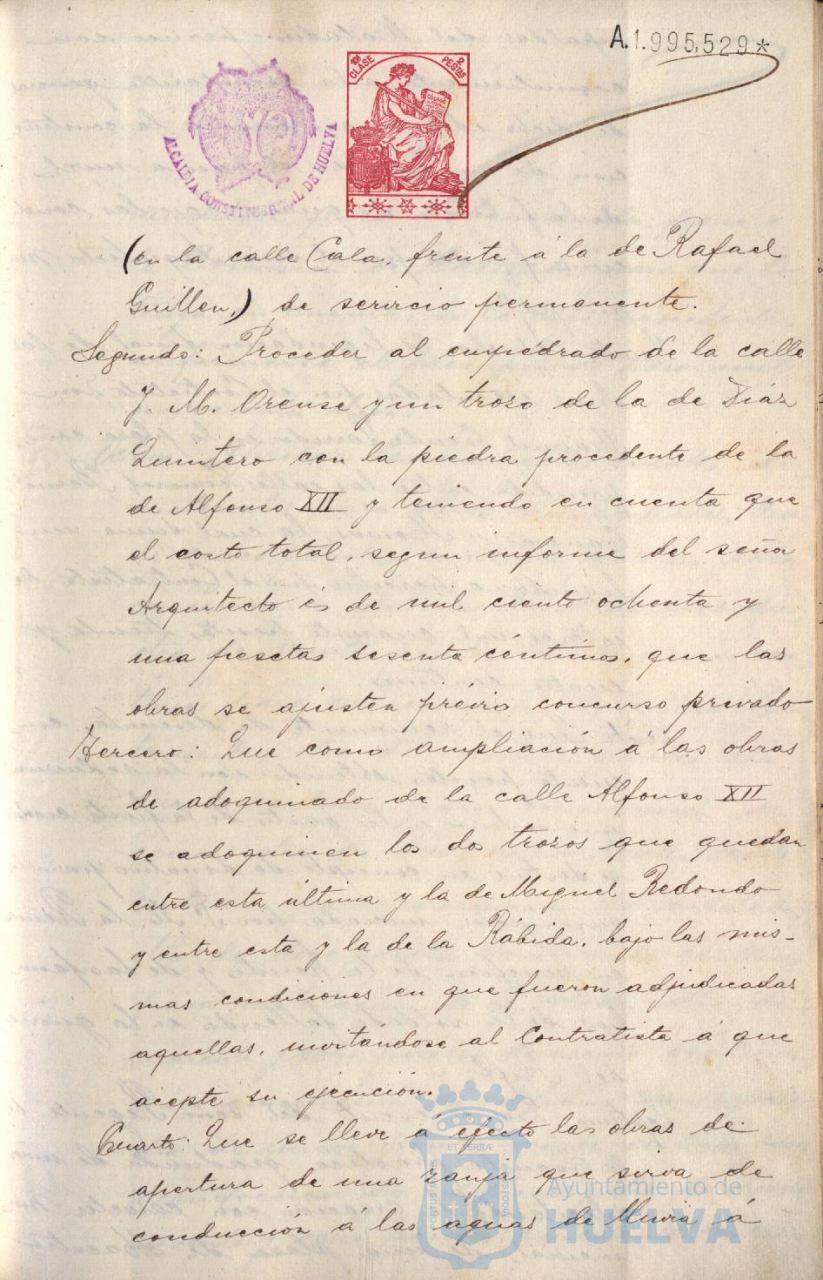 A.1.995,529*
10ª CLASE
2 PESETAS
ALCALDIA CONSTITUCIONAL DE HUELVA
(en la calle Cala, frente á la de Rafael
Guillen,) de servicio permanente.
Segundo: Proceder al empedrado de la calle
J. M. Orense y un troso de la de Diáz
Quintero con la piedra procedente de la
de Alfonso XII y teniendo en cuenta que
el costo total, segun informe del señor
Arquitecto és de mil ciento ochenta y
una pesetas sesenta céntimos, que las
obras se ajusten prévio concurso privado
Tercero: Que como ampliación á las obras
de adoquinado de la calle Alfonso XII
se adoquinen los dos trozos que quedan
entre esta última y la de Miguel Redondo
y entre esta y la de la Rábida, bajo las mis-
mas condiciones en que fueron adjudicadas
aquellas, invitándose al Contratista á que
acepte su ejecución.
Cuarto: Que se lleve á efecto las obras de
apertura de una zanja que sirva de
conducción á las aguas de lluvia á
ET TERRÆ
PORTUS
CUSTODIA
Ayuntamiento de
HUELVA